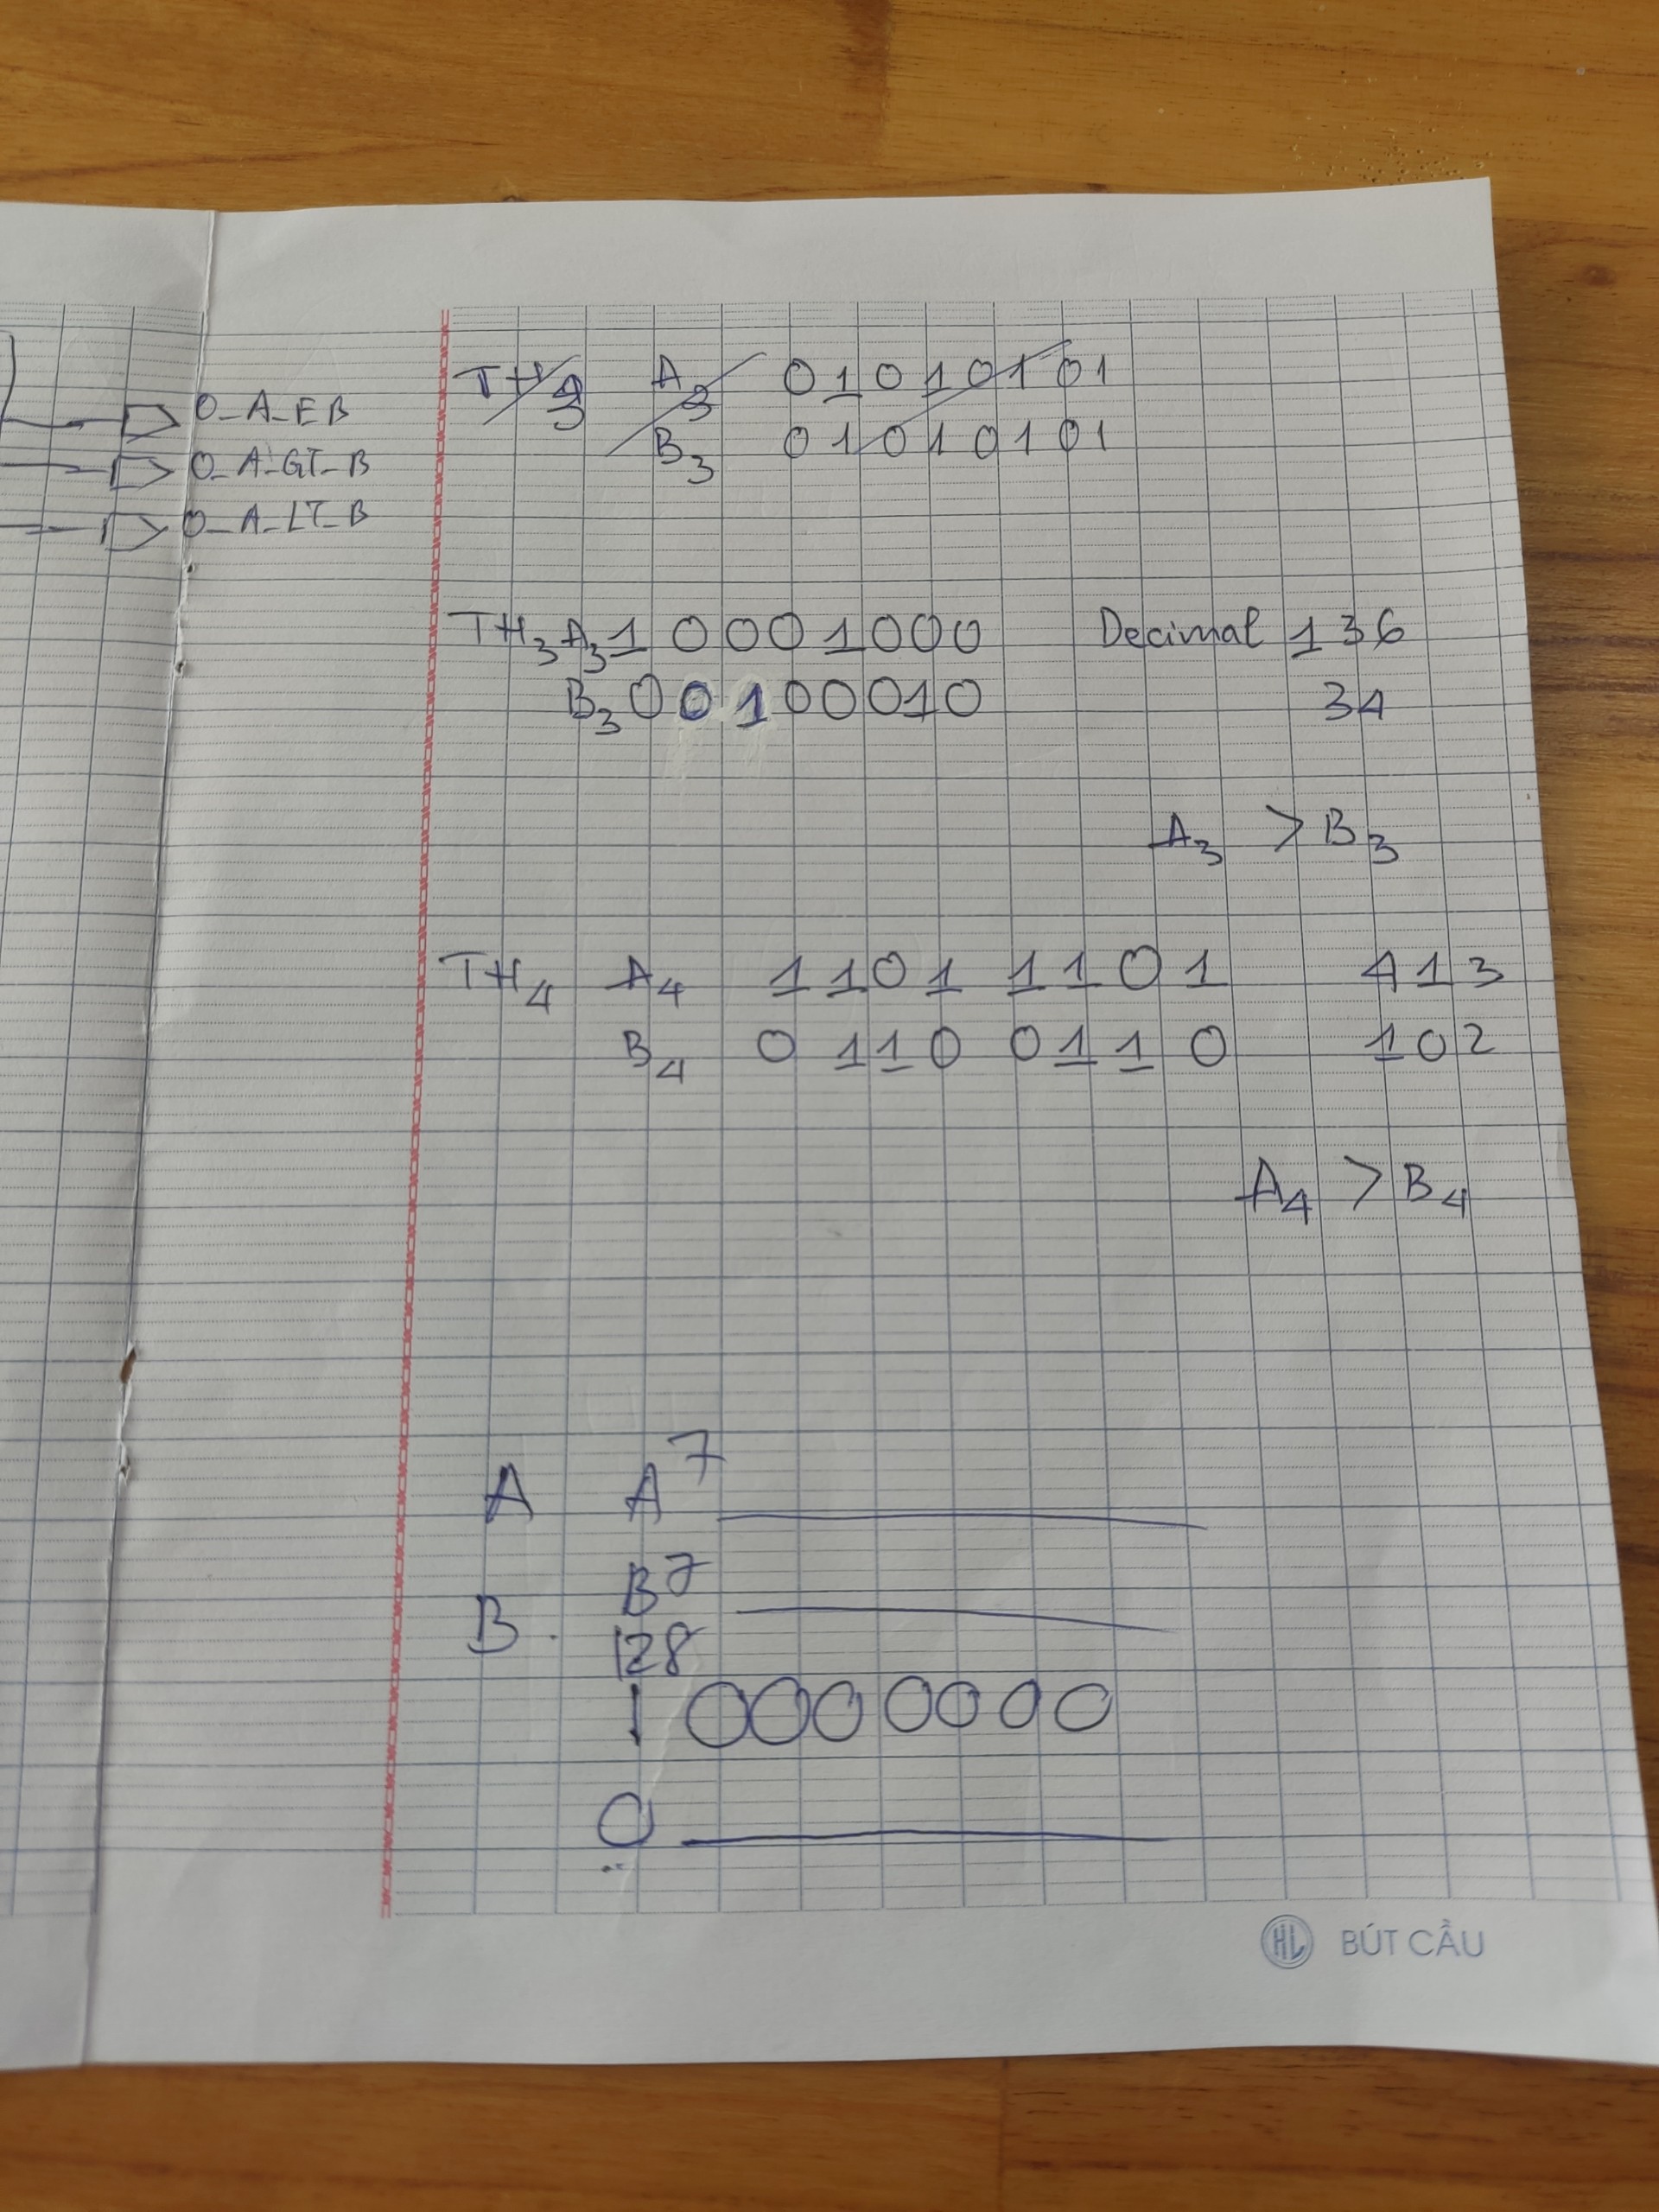 O_A_EB
O_A_GT_B
O_A_LT_B
TH3 A3 01010101
B3 01010101
TH3 A3 10001000 Decimal 136
B3 00100010 34
A3 > B3
TH4 A4 1101 1101 413
B4 0110 0110 102
A4 > B4
A A7
B B7
128
10000000
0
HL BÚT CẦU